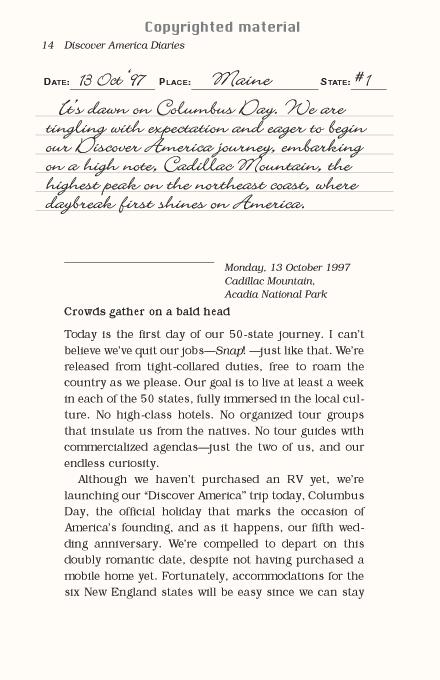 Copyrighted material
14 Discover America Diaries
DATE: 13 Oct '97 PLACE: Maine STATE: #1
It's dawn on Columbus Day. We are
tingling with expectation and eager to begin
our Discover America journey, embarking
on a high note, Cadillac Mountain, the
highest peak on the northeast coast, where
daybreak first shines on America.
Monday, 13 October 1997
Cadillac Mountain,
Acadia National Park
Crowds gather on a bald head
Today is the first day of our 50-state journey. I can't
believe we've quit our jobs—Snap! —just like that. We're
released from tight-collared duties, free to roam the
country as we please. Our goal is to live at least a week
in each of the 50 states, fully immersed in the local cul-
ture. No high-class hotels. No organized tour groups
that insulate us from the natives. No tour guides with
commercialized agendas—just the two of us, and our
endless curiosity.
Although we haven't purchased an RV yet, we're
launching our “Discover America” trip today, Columbus
Day, the official holiday that marks the occasion of
America's founding, and as it happens, our fifth wed-
ding anniversary. We're compelled to depart on this
doubly romantic date, despite not having purchased a
mobile home yet. Fortunately, accommodations for the
six New England states will be easy since we can stay